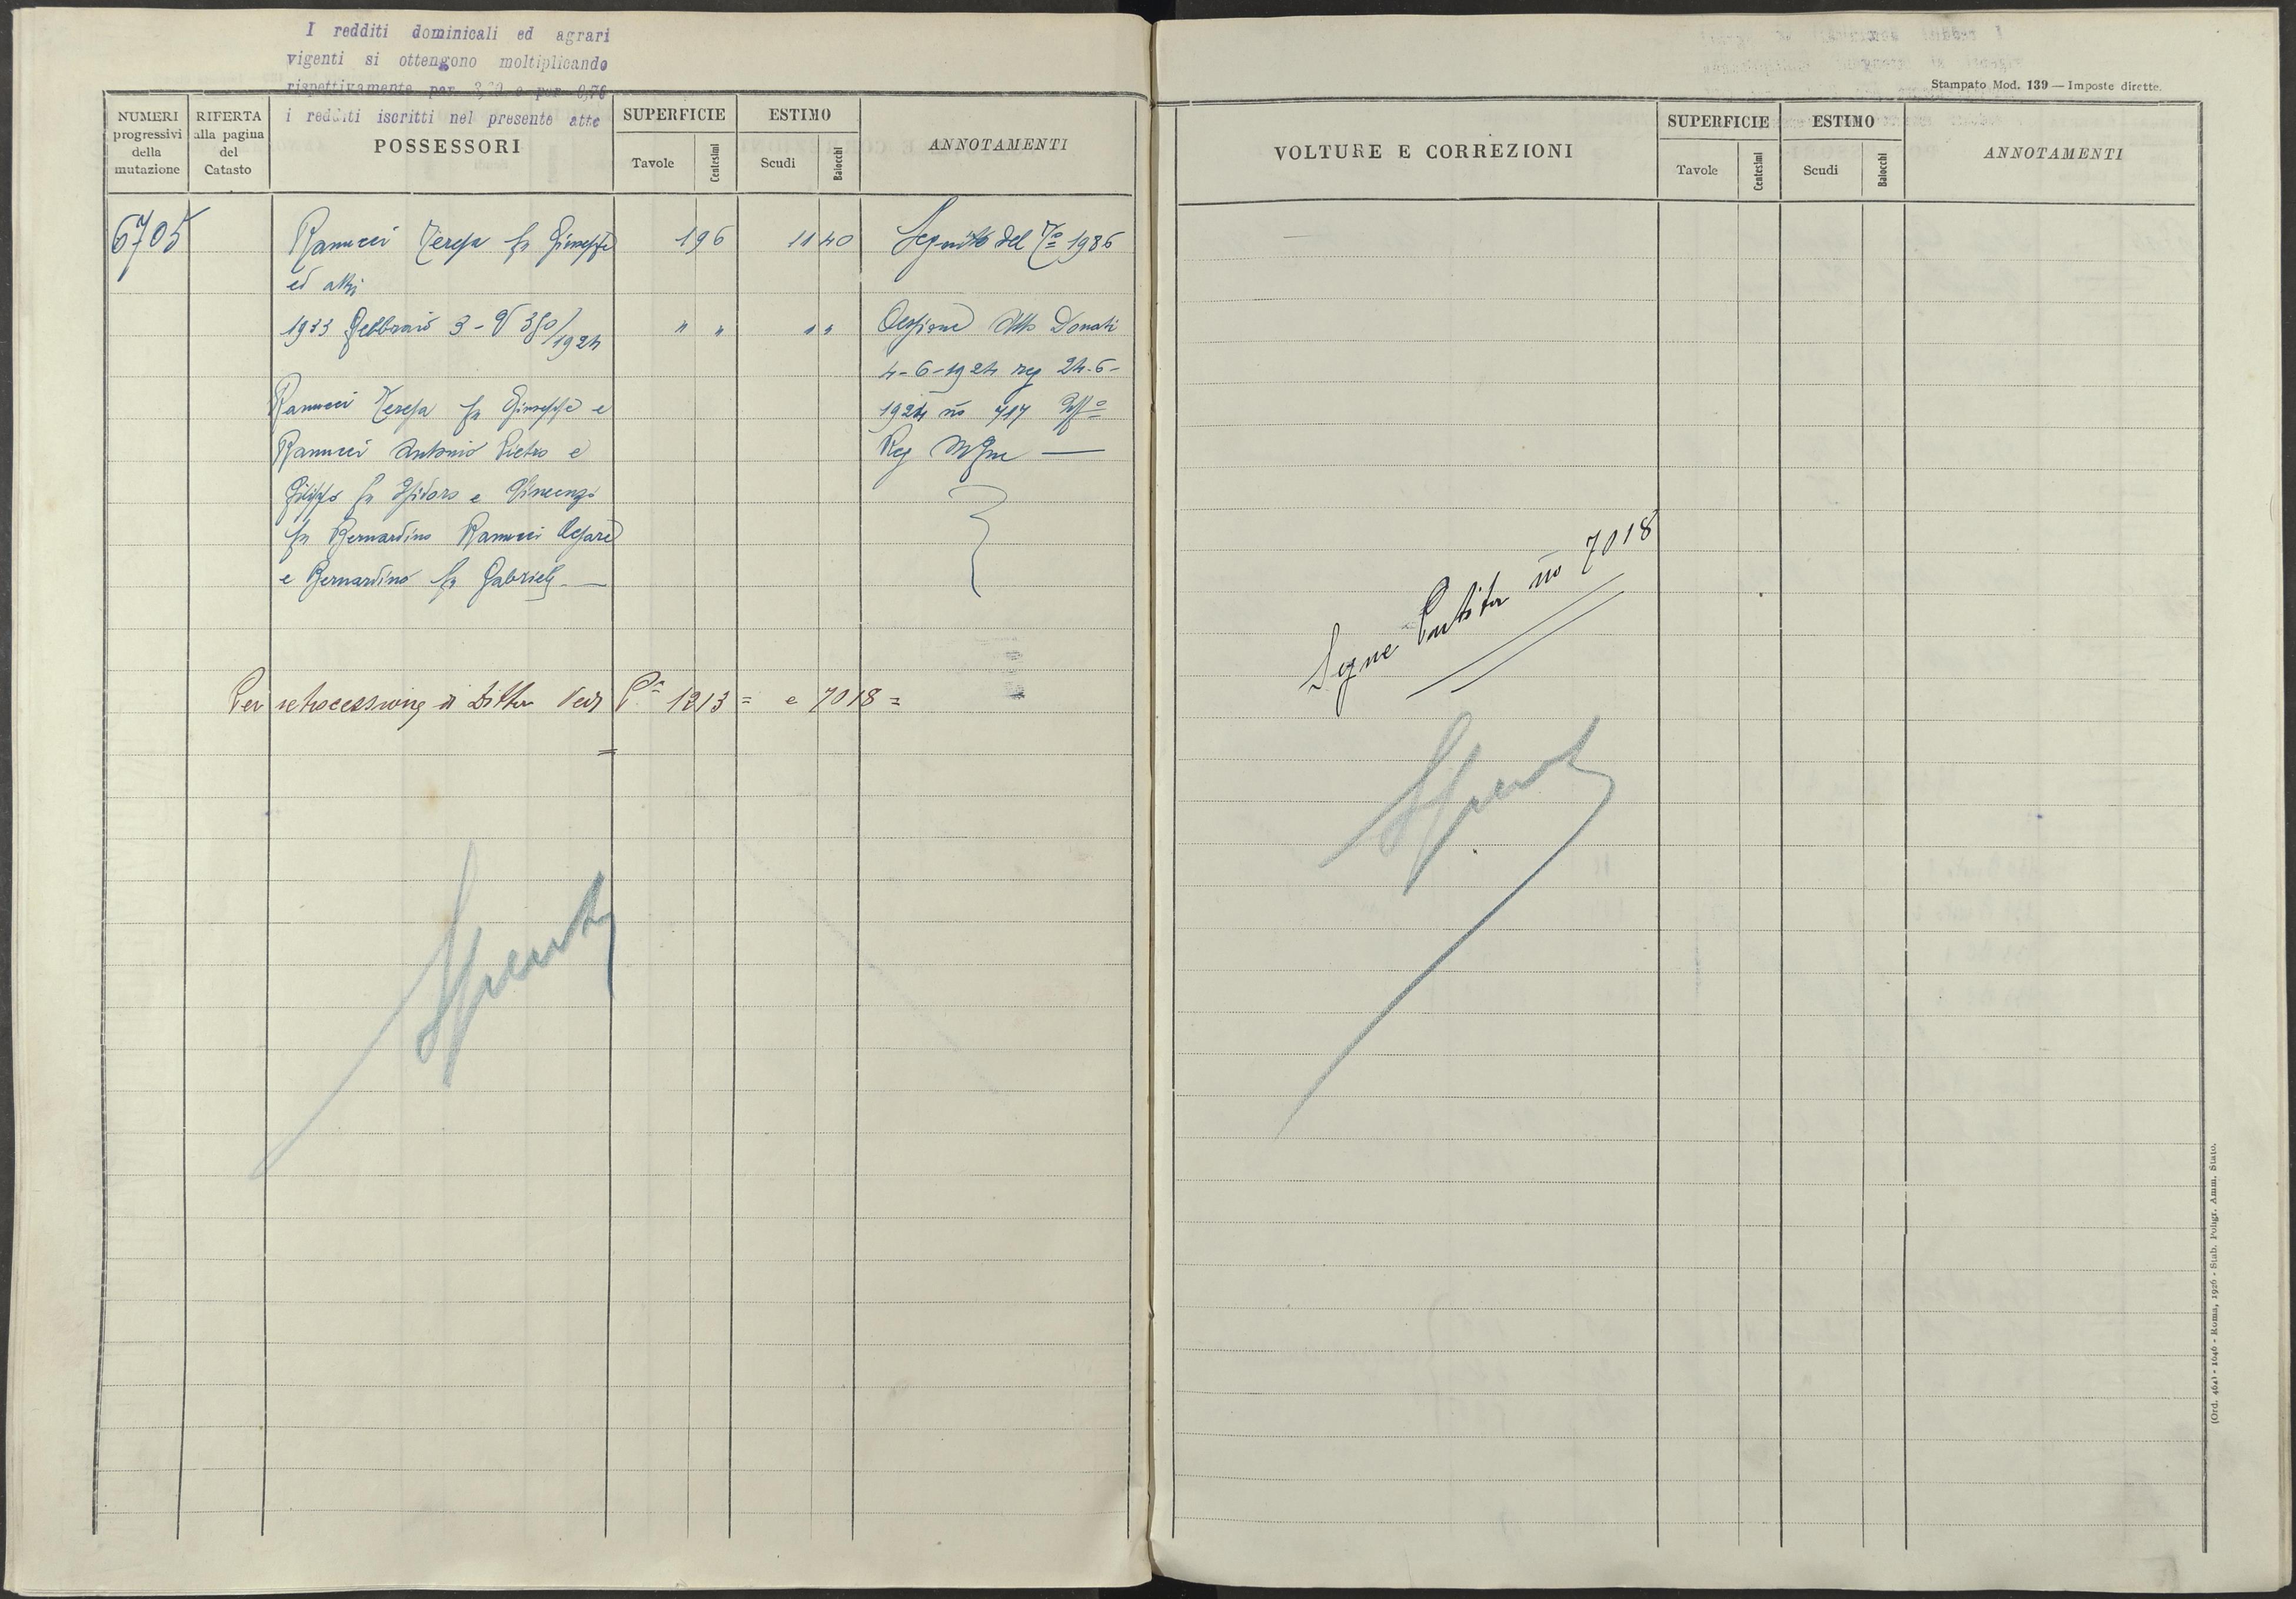 I redditi dominicali ed agrari
vigenti si ottengono moltiplicando
rispettivamente per 3,20 e per 0,76
i redditi iscritti nel presente atto
NUMERI
progressivi
della
mutazione
RIFERTA
alla pagina
del
Catasto
POSSESSORI
SUPERFICIE
Tavole
Centesimi
ESTIMO
Scudi
Baiocchi
ANNOTAMENTI
6705
Ranucci Teresa fu Giuseppe
ed altri
1 96
11 40
Seguito del 1986
1933 Febbraio 3 - V 350/1924
" "
" "
Cessione Atto Donati
4-6-1924 reg 24-6-
1924 no 717
Reg
Ranucci Teresa fu Giuseppe e
Ranucci Antonio Pietro e
Filippo fu Isidoro e Vincenzo
fu Bernardino Ranucci Cesare
e Bernardino fu Gabriele
Per retrocessione di Ditta Vedi Pa 1213 = e 7018 =
Spenta
Stampato Mod. 139 — Imposte dirette.
VOLTURE E CORREZIONI
SUPERFICIE
Tavole
Centesimi
ESTIMO
Scudi
Baiocchi
ANNOTAMENTI
Segue Partita no 7018
Spenta
(Ord. 464) - 1046 - Roma, 1926 - Stab. Poligr. Amm. Stato.